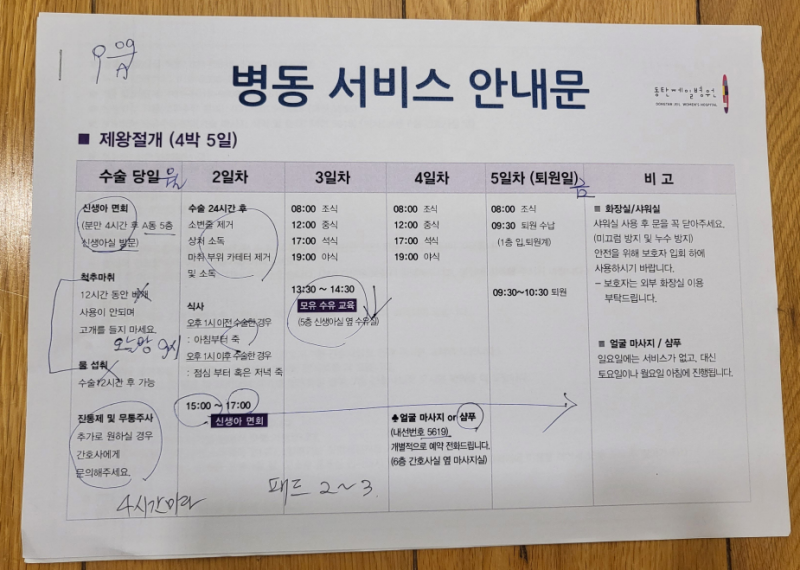 09
A
병동 서비스 안내문
동탄제일병원
DONGTAN JEIL WOMEN'S HOSPITAL
■ 제왕절개 (4박 5일)
수술 당일 2일차 3일차 4일차 5일차 (퇴원일) 금 비 고
신생아 면회
(분만 4시간 후 A동 5층
신생아실 방문)
척추마취
12시간 동안 베개
사용이 안되며
고개를 들지 마세요.
오늘밤 9시
물 섭취
수술12시간 후 가능
진통제 및 무통주사
추가로 원하실 경우
간호사에게
문의해주세요.
4시간마다
수술 24시간 후
소변줄 제거
상처 소독
마취 부위 카테터 제거
및 소독
식사
오후 1시 이전 수술한 경우
: 아침부터 죽
오후 1시 이후 수술한 경우
: 점심 부터 혹은 저녁 죽
15:00 ~ 17:00
신생아 면회
패드 2~3
08:00 조식
12:00 중식
17:00 석식
19:00 야식
13:30 ~ 14:30
모유 수유 교육
(5층 신생아실 옆 수유실)
08:00 조식
12:00 중식
17:00 석식
19:00 야식
♣얼굴 마사지 or 샴푸
(내선번호 5619)
개별적으로 예약 전화드립니다.
(6층 간호사실 옆 마사지실)
08:00 조식
09:30 퇴원 수납
(1층 입.퇴원계)
09:30~10:30 퇴원
■ 화장실/샤워실
샤워실 사용 후 문을 꼭 닫아주세요.
(미끄럼 방지 및 누수 방지)
안전을 위해 보호자 입회 하에
사용하시기 바랍니다.
– 보호자는 외부 화장실 이용
부탁드립니다.
■ 얼굴 마사지 / 샴푸
일요일에는 서비스가 없고, 대신
토요일이나 월요일 아침에 진행됩니다.